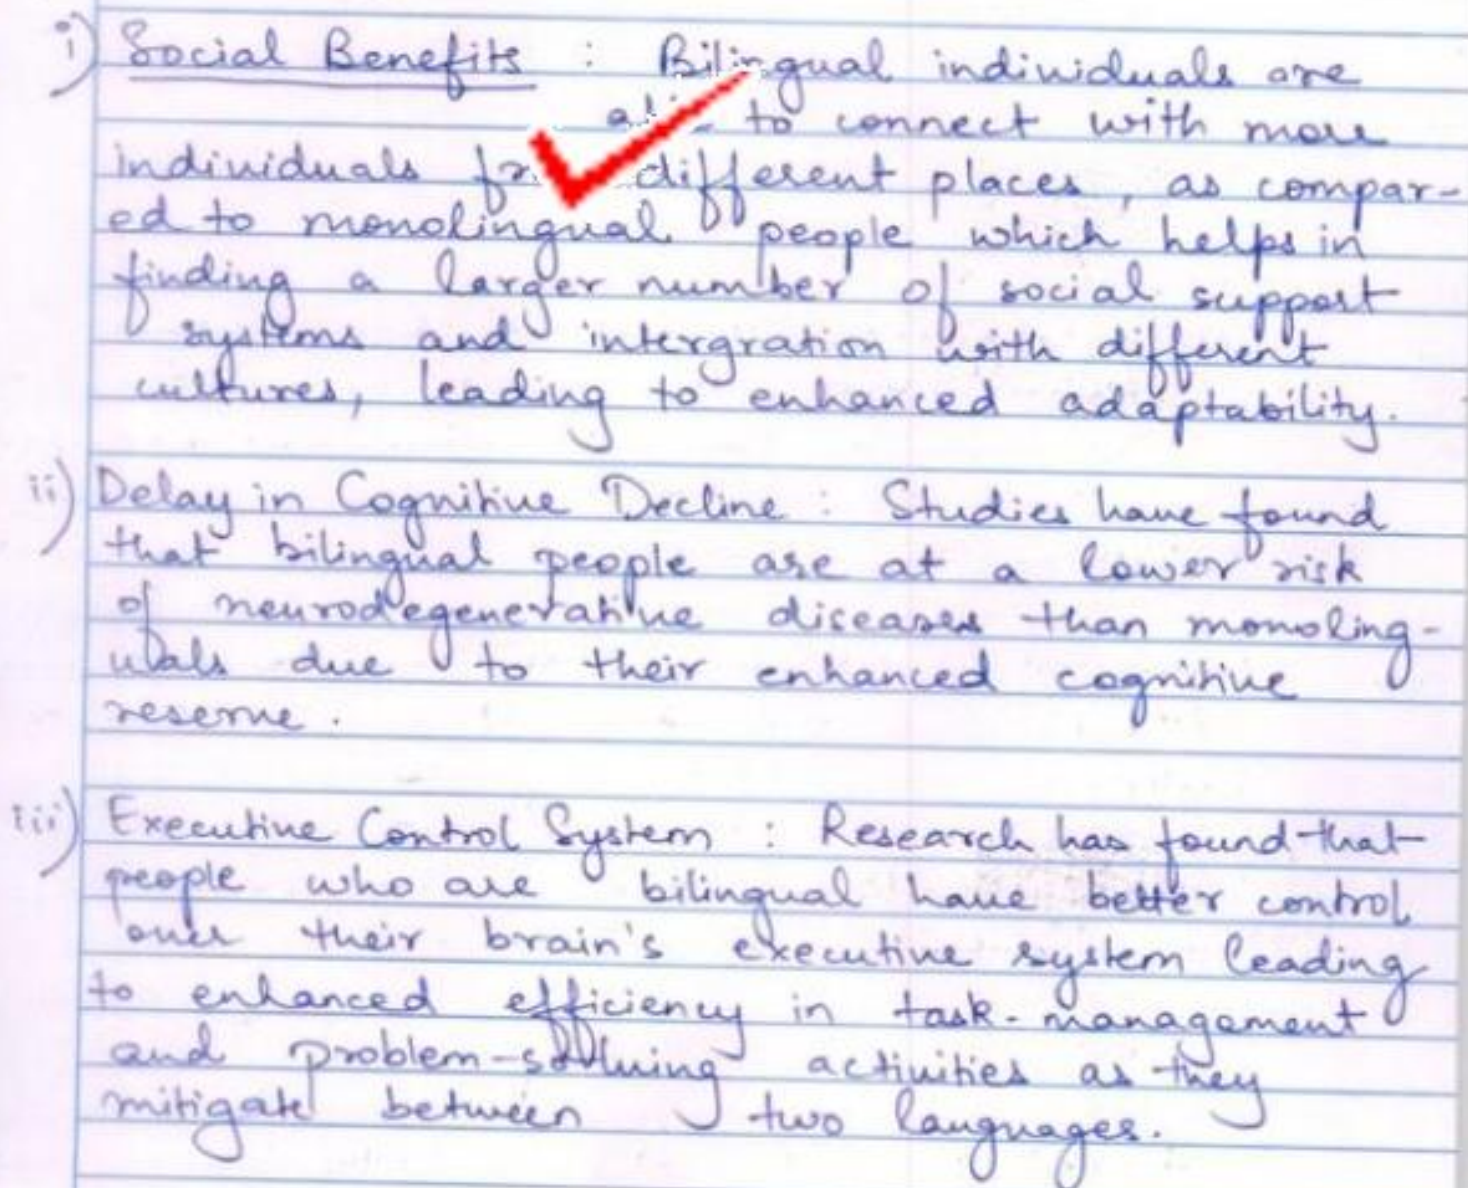 i) Social Benefits : Bilingual individuals are
to connect with more
individuals different places, as compar-
ed to monolingual people which helps in
finding a larger number of social support
systems and intergration with different
cultures, leading to enhanced adaptability.
ii) Delay in Cognitive Decline : Studies have found
that bilingual people are at a lower risk
of neurodegenerative diseases than monoling-
uals due to their enhanced cognitive
reserve.
iii) Executive Control System : Research has found that
people who are bilingual have better control
over their brain's executive system leading
to enhanced efficiency in task-management
and problem-solving activities as they
mitigate between two languages.